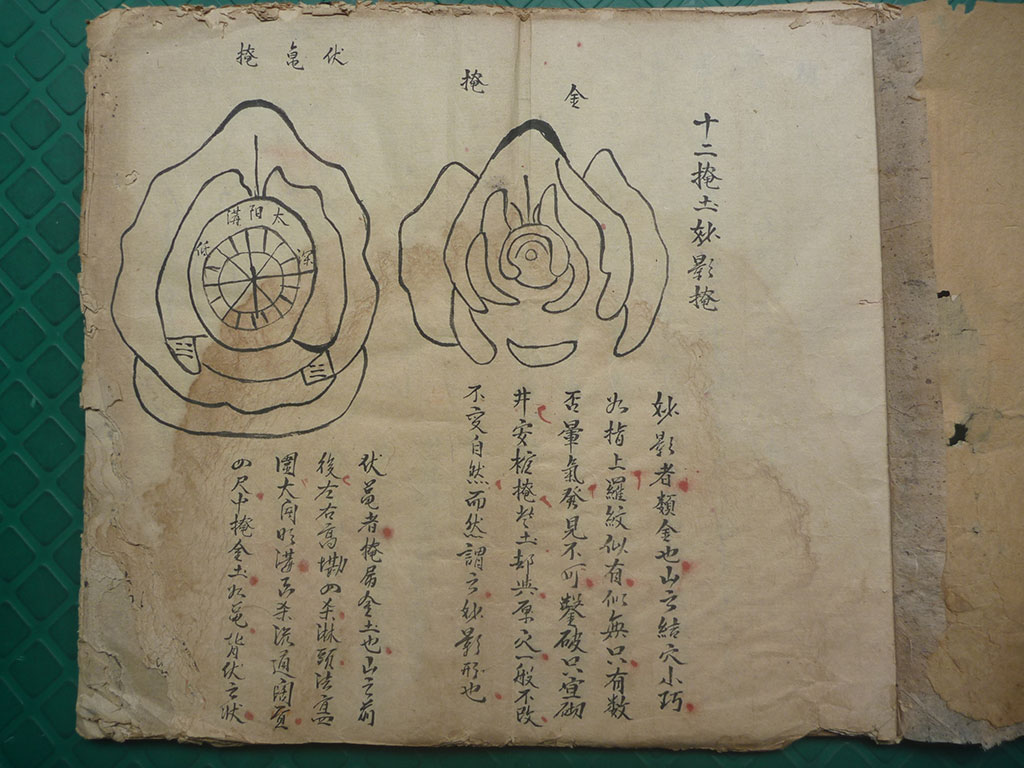 十二掩土妙影掩
金
掩
妙影者類金也山之結穴小巧
如指上羅紋似有似無只有数
否暈氣發見不可鑿破只宜砌
井安棺掩土却與原穴一般不改
不变自然而然謂之妙影形也
伏亀掩
太阳溝
深
低
三
三
伏黽者掩屬金土也山之前
後左右高 四杀淋頭法
圍大 明溝 杀流通
四尺十掩金土如黽背伏之状